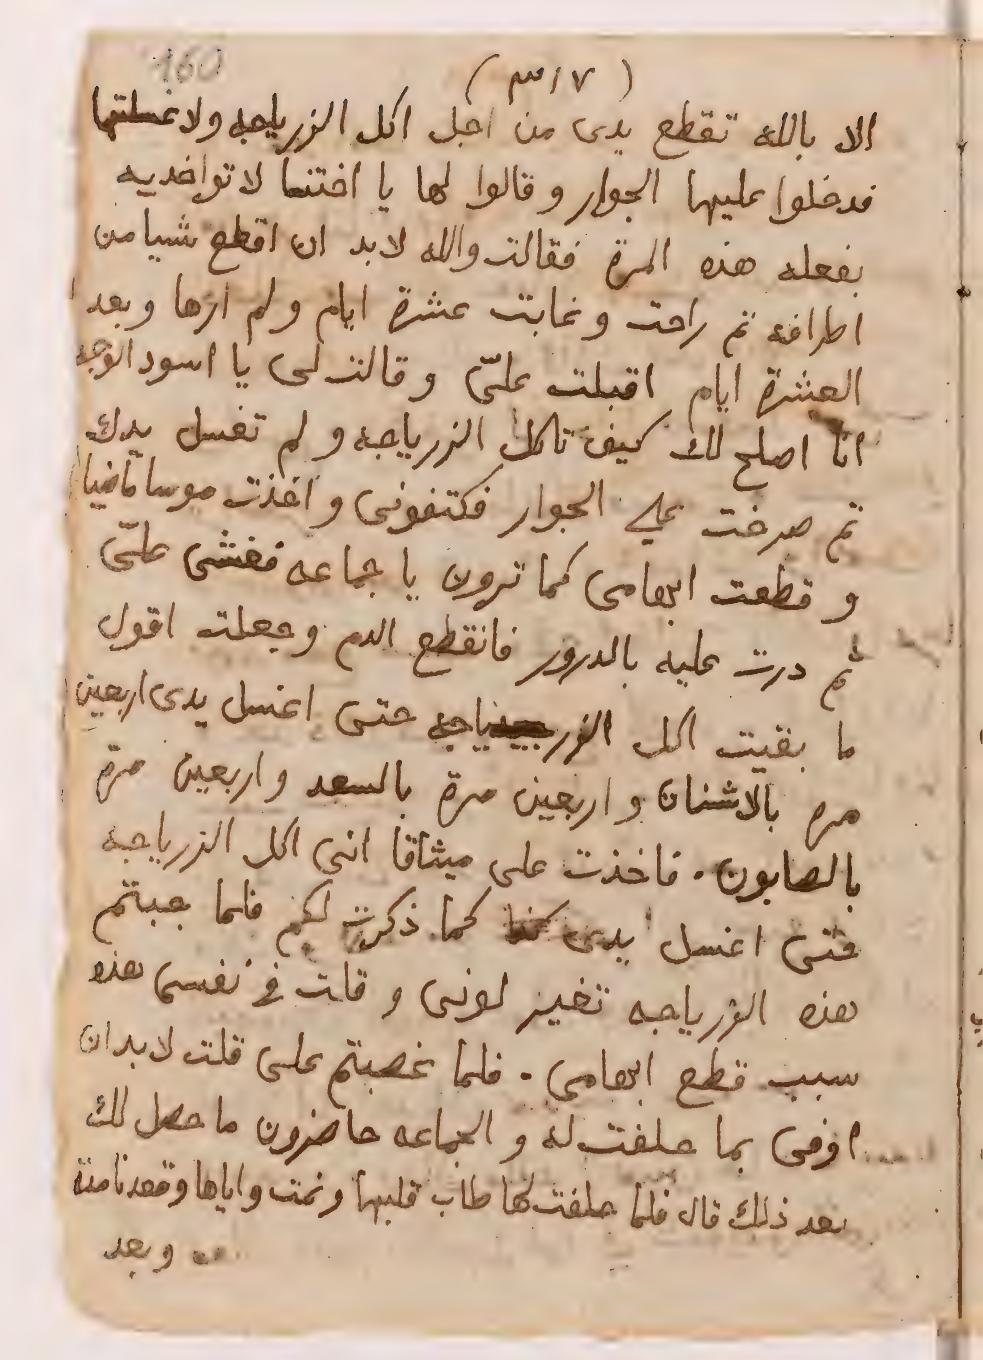 160
( ٣١٧ )
الا بالله تقطع يدى من اجل اكل الزرباجه ولا غسلتها
فدخلوا عليها الجوار وقالوا لها يا اختنا لا تواخديه
بفعله هذه المرة فقالت والله لا بد ان اقطع شيا من
اطرافه ثم راحت وغابت عشرة ايام ولم ارها وبعد
العشرة ايام اقبلت علىّ وقالت لى يا اسود الوجه
انا اصلح لك كيف تاكل الزرباجه ولم تغسل يدك
ثم صرخت على الجوار فكتفونى واخذت موسا ماضيا
وقطعت ابهامى كما ترون يا جماعه فغشى علىّ
ثم درت عليه بالدرور فانقطع الدم وجعلت اقول
ما بقيت اكل الزرباجه حتى اغسل يدى اربعين
مره بالاشنان واربعين مرة بالسعد واربعين مرة
بالصابون . فاخذت على ميثاقا انى اكل الزرباجه
حتى اغسل يدى كما ذكرت لكم فلما جبتم
هذه الزرباجه تغير لونى وقلت فى نفسى هذه
سبب قطع ابهامى . فلما غصبتم على قلت لا بد ان
اوفى بما حلفت له والجماعه حاضرون ما حصل لك
بعد ذلك قال فلما حلفت لها طاب قلبها ونمت واياها وقعدنا مدة
وبعد